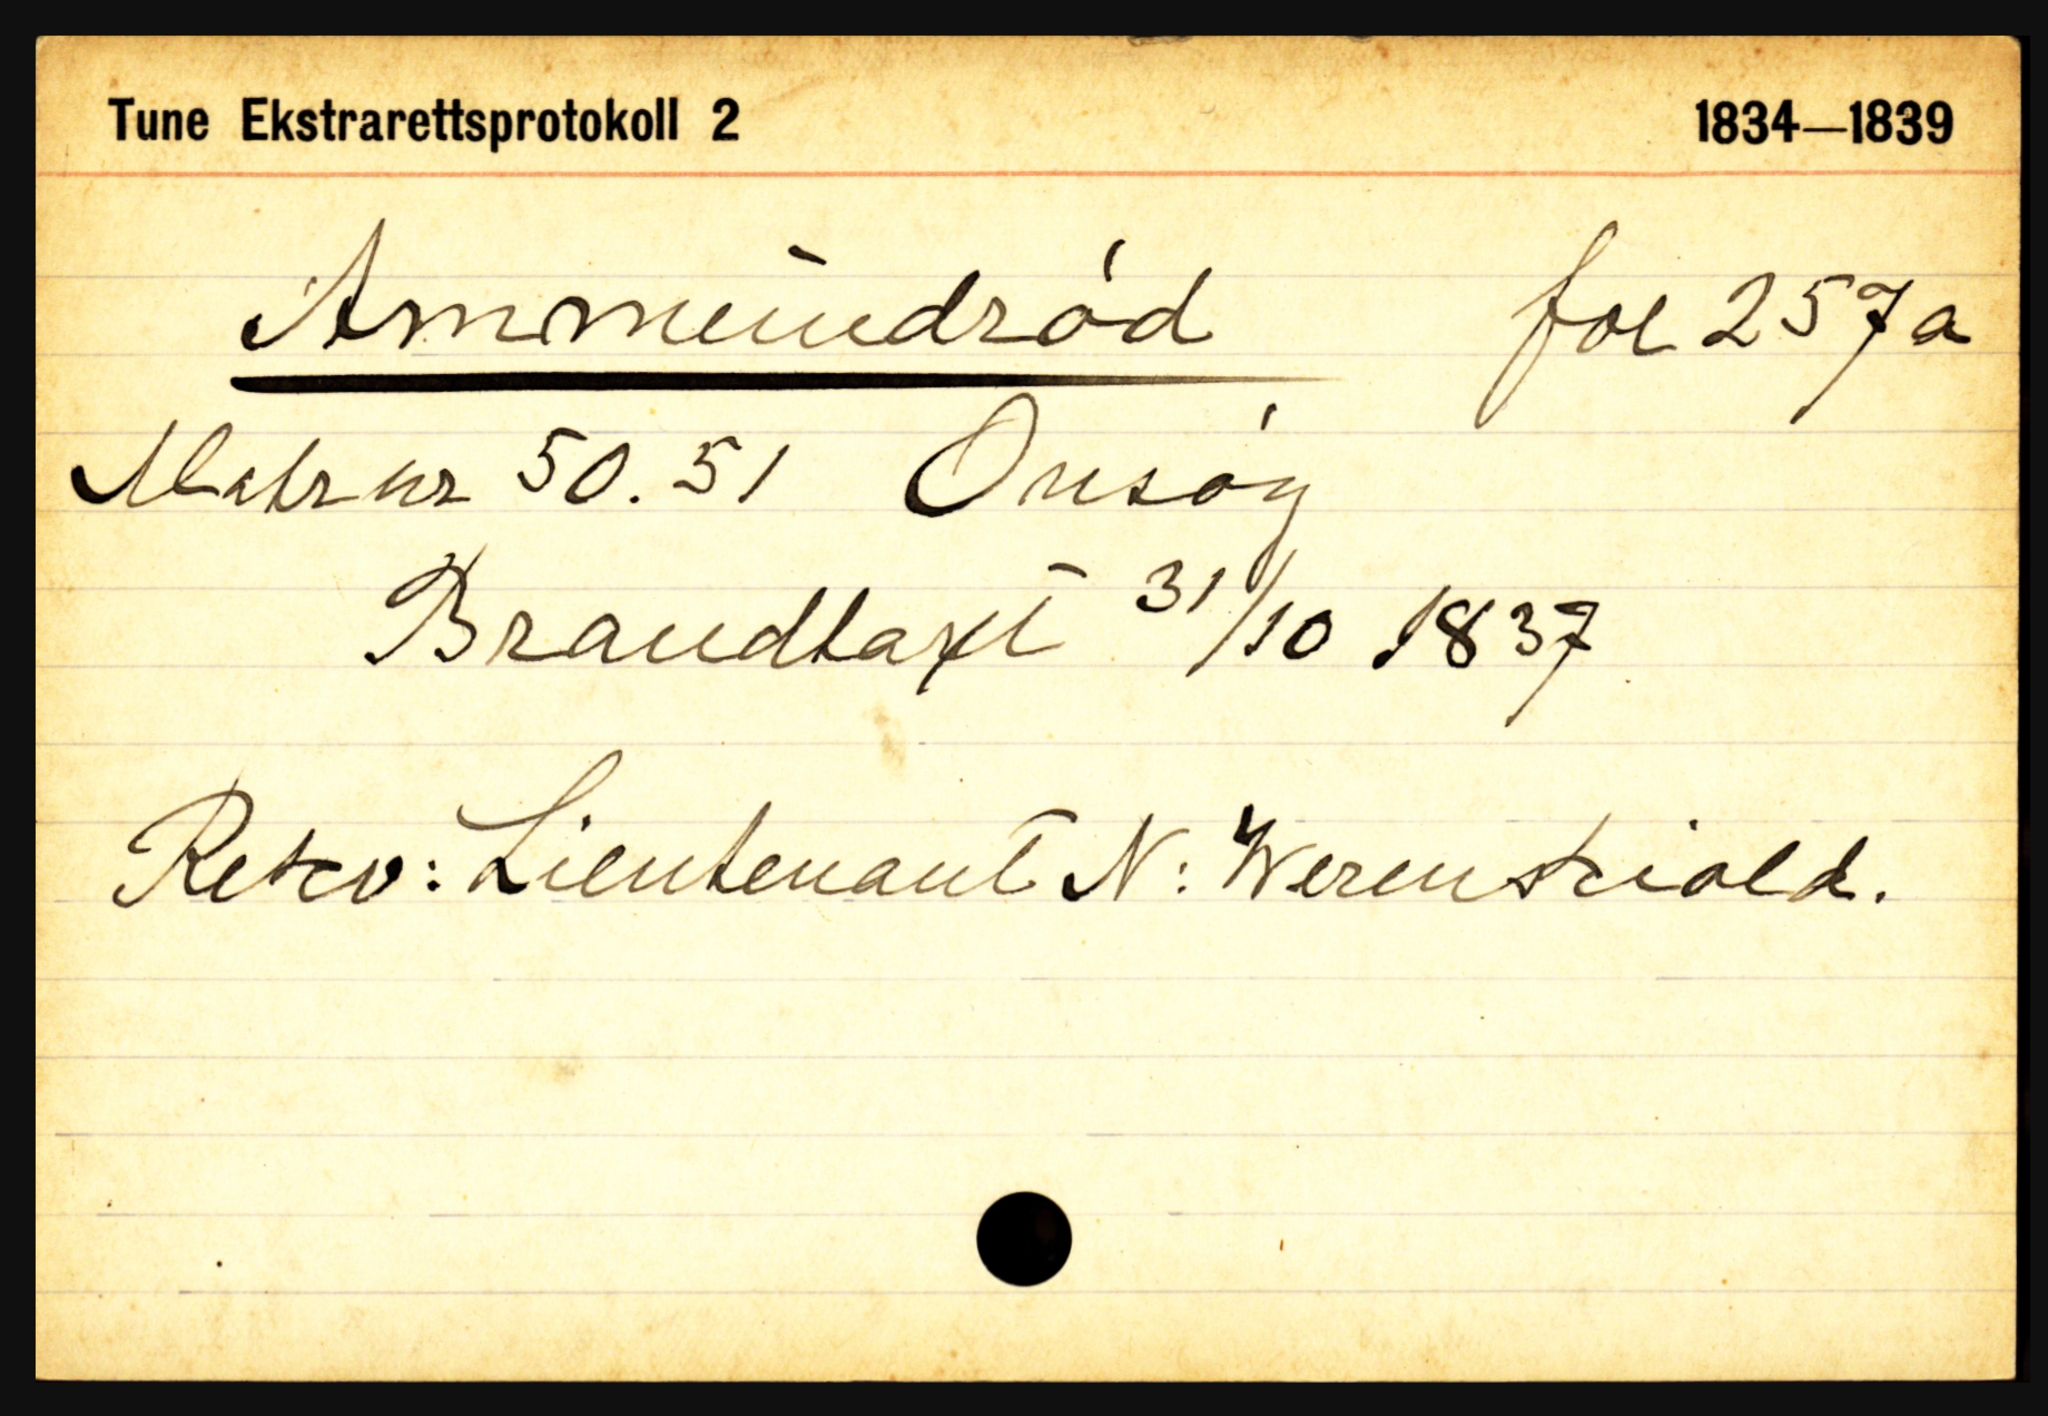 Tune Ekstrarettsprotokoll 2 1834—1839
Ammundrød fol 257a
Matr nr 50. 51 Onsøy
Brandtaxt 31/10 1837
Rekv: Lieutenant N: Werenskiold.